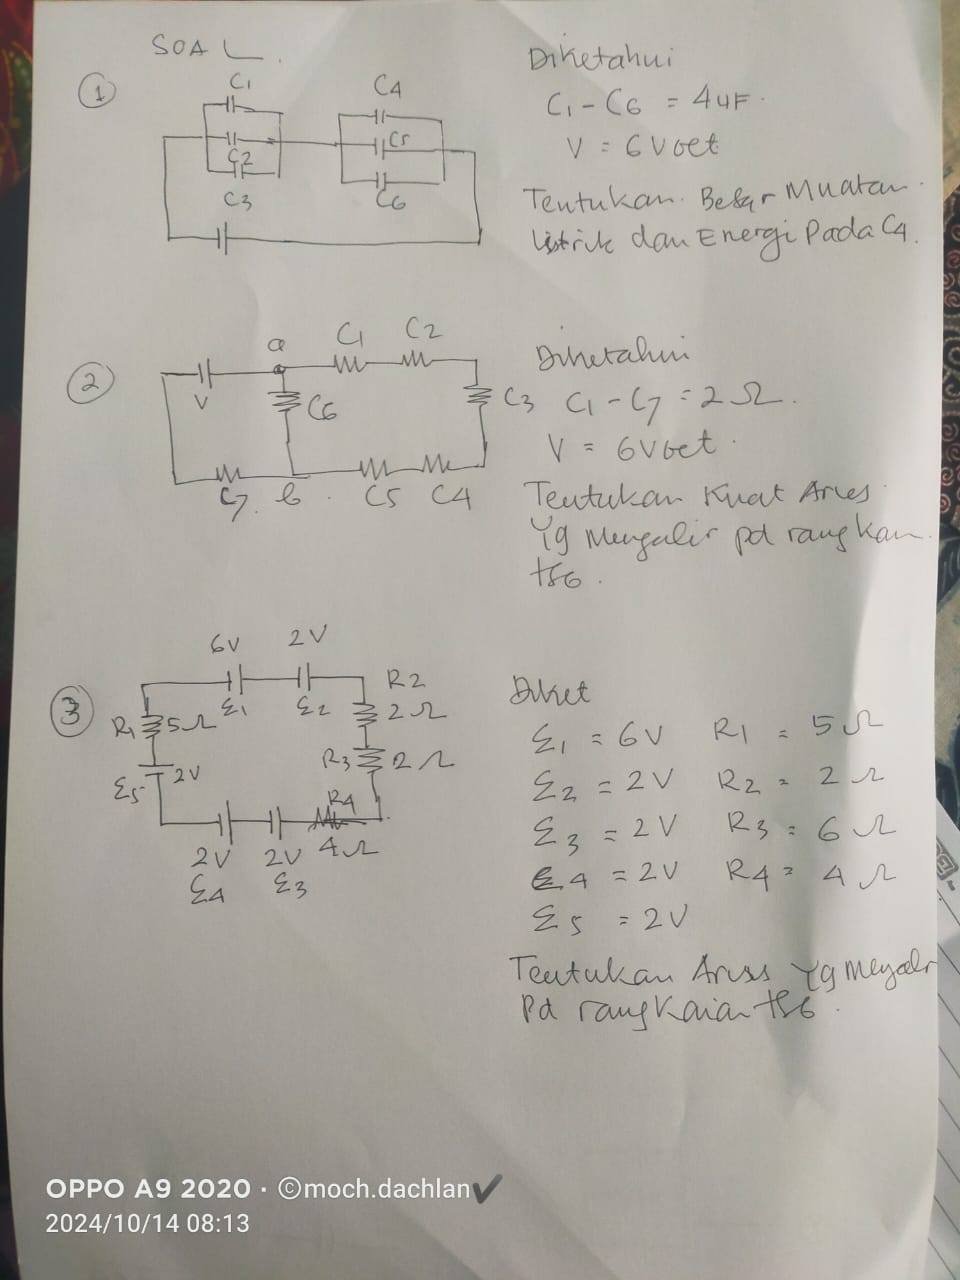 SOAL.
①
C1
C2
C3
C4
C5
C6
Diketahui
C1 - C6 = 4uF.
V = 6 Volt
Tentukan Besar Muatan
listrik dan Energi Pada C4.
②
V
a
C1
C2
C6
C3
C7.
b.
C5
C4
Diketahui
C1 - C7 = 2 Ω.
V = 6 Volt.
Tentukan Kuat Arus
Yg Mengalir pd rangkan
tsb.
③
6V
2V
ε1
ε2
R2
2Ω
R1
5Ω
R3
2Ω
ε5
2V
R4
4Ω
2V
2V
ε4
ε3
Diket
ε1 = 6V R1 = 5Ω
ε2 = 2V R2 = 2Ω
ε3 = 2V R3 = 6Ω
ε4 = 2V R4 = 4Ω
ε5 = 2V
Tentukan Arus Yg
Pd rangkaian tsb.
OPPO A9 2020 · ©moch.dachlan✔
2024/10/14 08:13